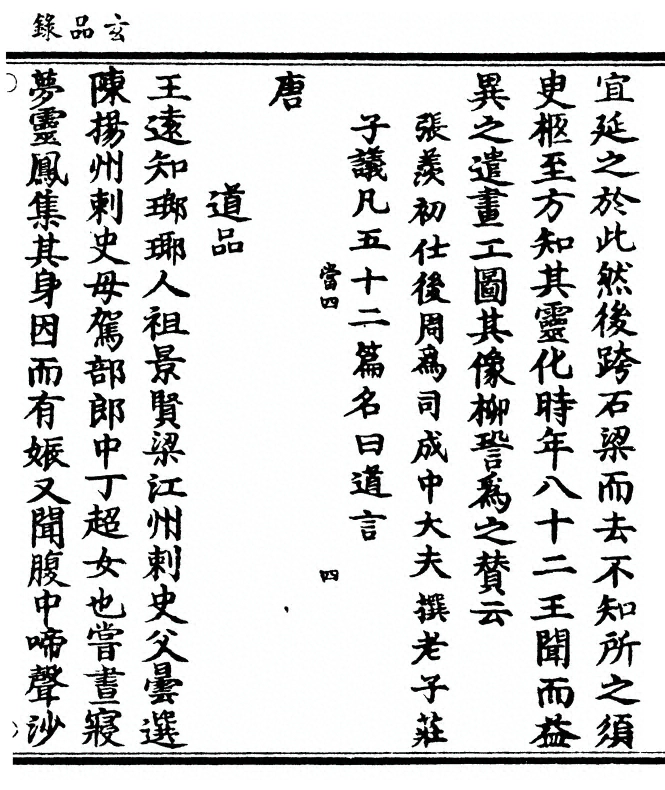 玄品錄
宜延之於此然後跨石梁而去不知所之須
吏柩至方知其靈化時年八十二王聞而益
異之遣畫工圖其像柳䛒爲之賛云
張羨初仕後周爲司成中大夫撰老子莊
子議凡五十二篇名曰道言
當四
四
唐
道品
王遠知瑯琊人祖景賢梁江州刺史父曇選
陳揚州刺史母駕部郎中丁超女也嘗晝寢
夢靈鳳集其身因而有娠又聞腹中啼聲沙